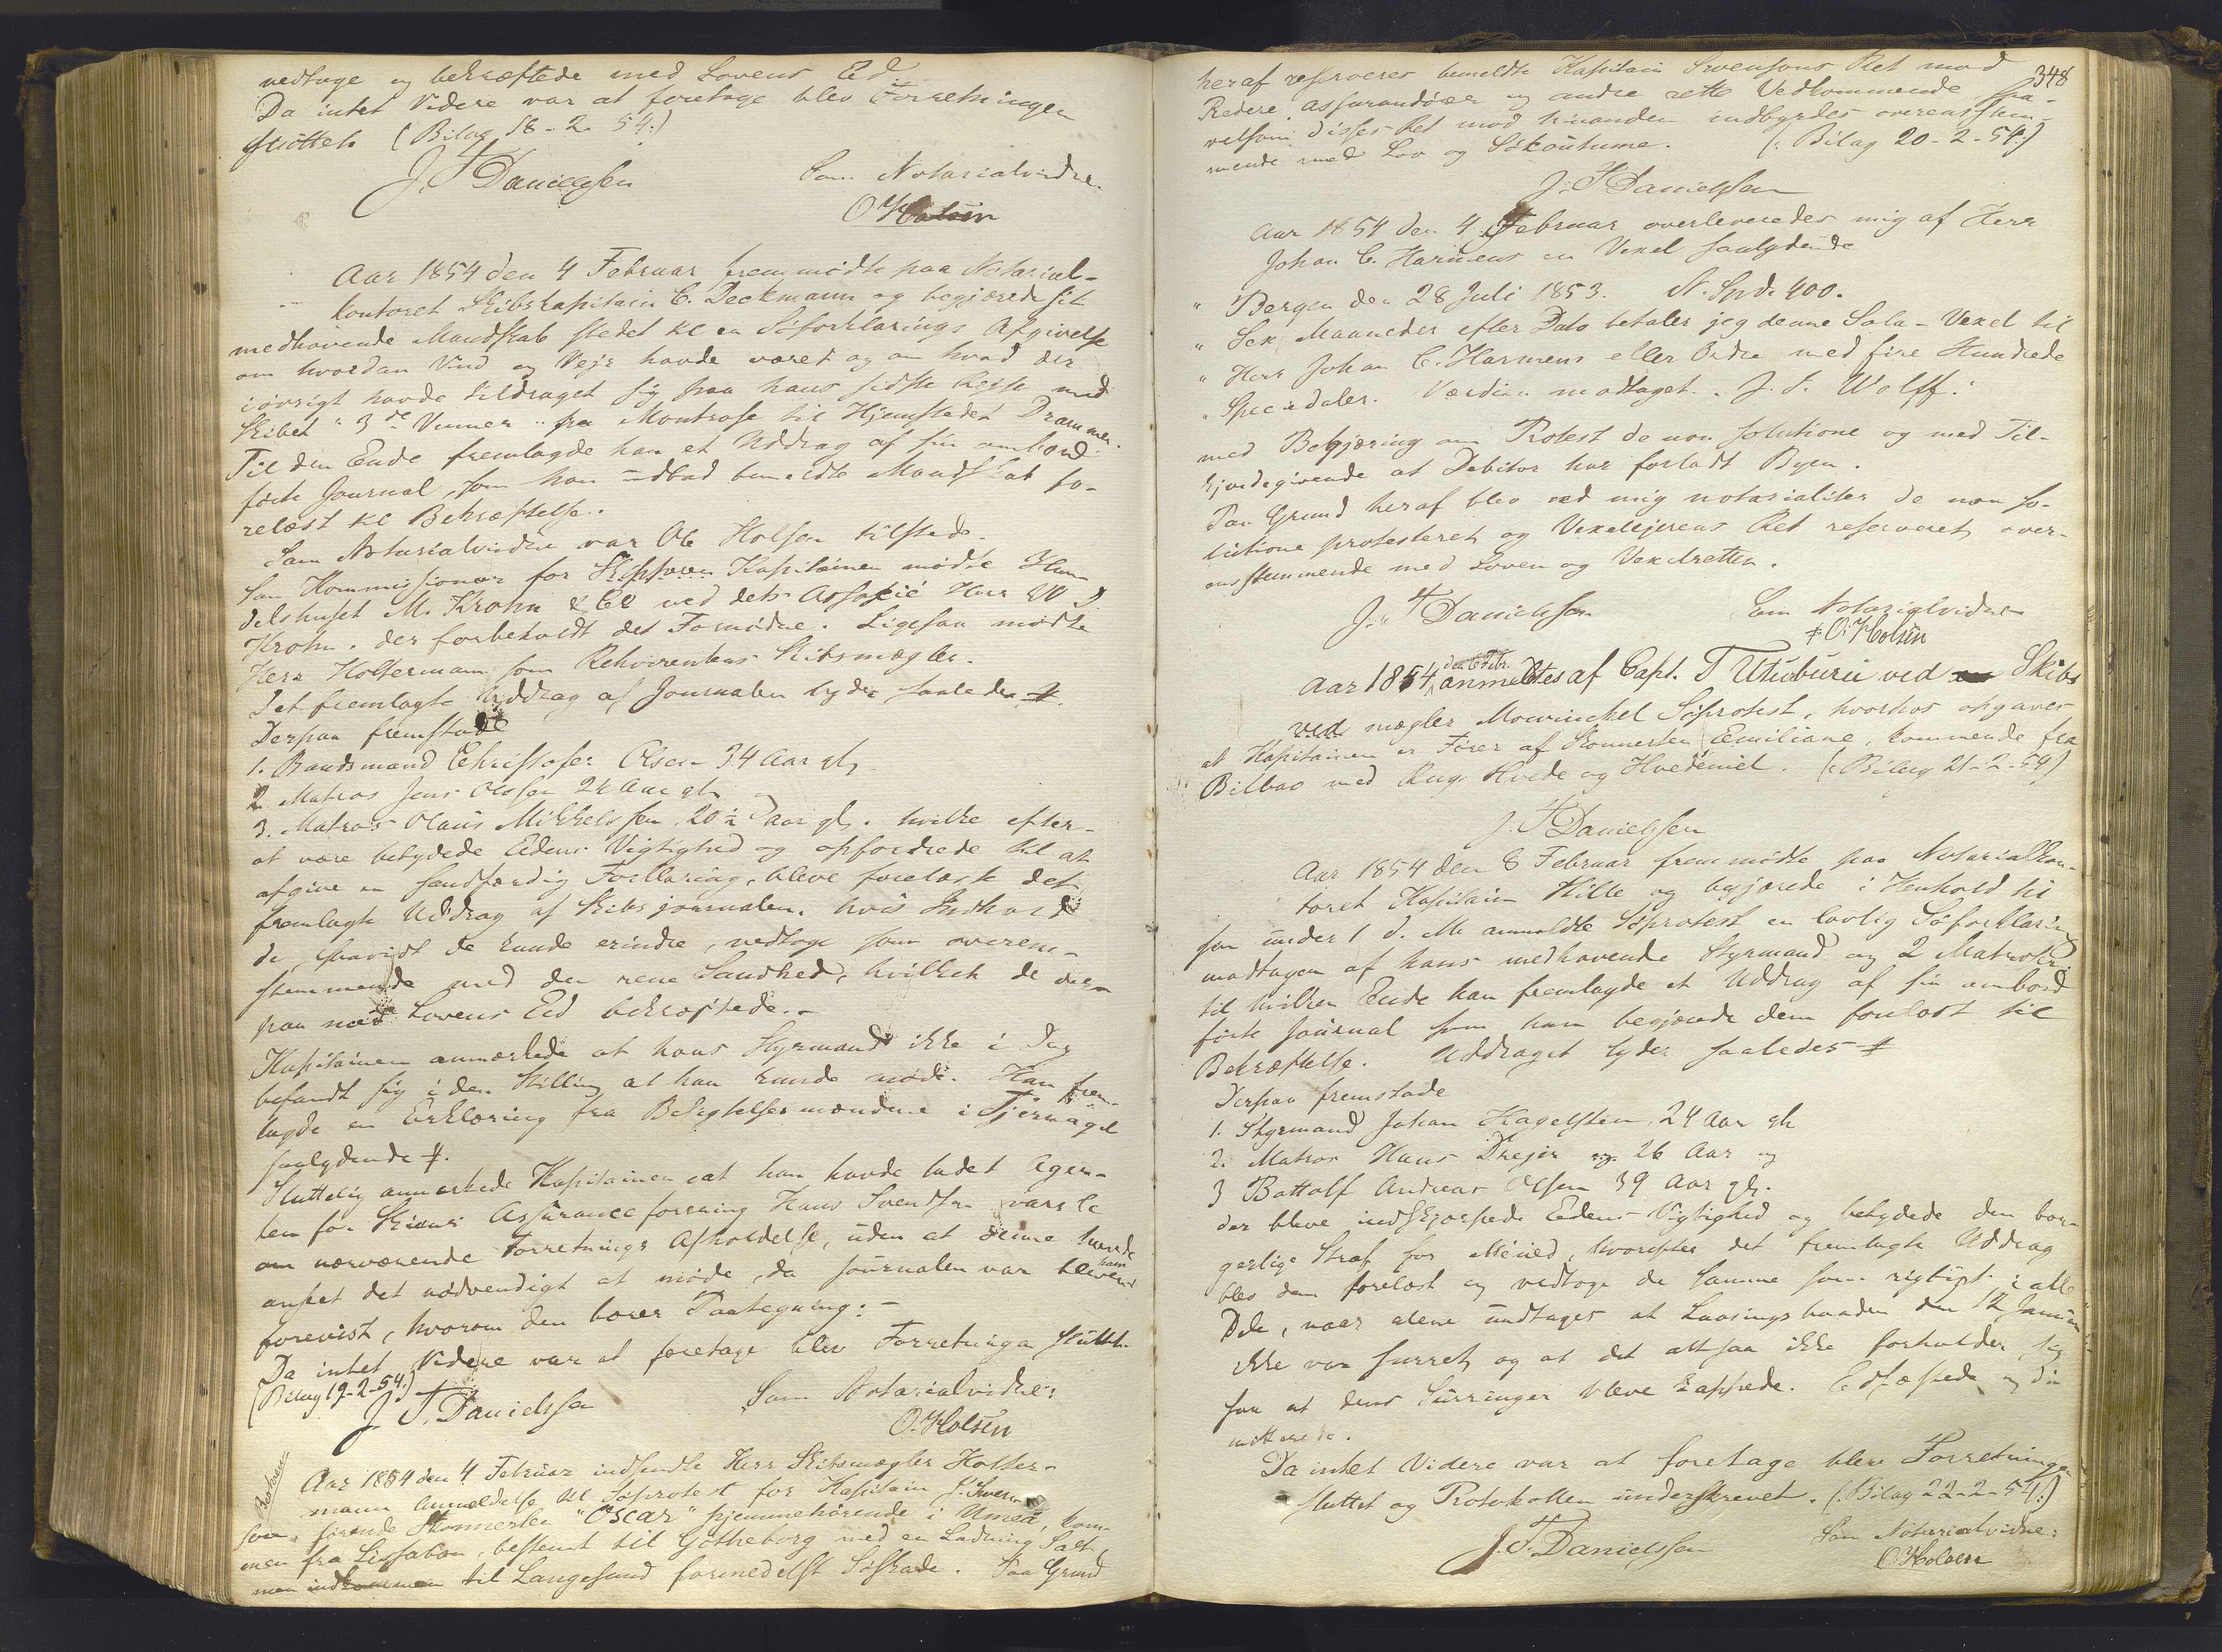 vedtoge og bekræftede med Lovens Ed.
Da intet Videre var at foretage blev Forretningen
sluttet (Bilag 18-2-54:)
J. F Danielssen
Som Notarialvidne.
O Holsen
Aar 1854 den 4 Februar fremmødte paa Notarial-
kontoret Skibskapitain C. Deckmann og begjærede sit
medhavende Mandskab stedet til en Söforklarings Afgivelse
om hvordan Vind og Vejr havde været og om hvad der
iövrigt havde tildraget sig paa hans sidste Rejse med
Skibet "3de Venner" fra Montrose til Hjemstedet Drammen.
Til den Ende fremlagde han et Uddrag af sin ombord-
förte Journal, som han udbad bemeldte Mandskab fo-
relæst til Bekræftelse.
Som Notarialvidne var Ole Holsen tilstede.
Som Kommissionær for Kapitainen mödte Han-
delshuset M. Krohn & Co ved dets Associé Herr W D
Krohn. der forbeholdt det Fornödne. Ligesaa mödte
Herr Holtermann som Rekvirentens Skibsmægler.
Det fremlagte Uddrag af Journalen lyder saaledes #.
Derpaa fremstode
1. Baadsmand Christofer Olsen 34 Aar gl,
2 Matros Jens Olssen 24 Aar gl. og
3. Matros Olaus Mikkelssen 20½ Aar gl. hvilke efter-
at være betydede Edens Vigtighed og opfordrede til at
afgive en sandfærdig Forklaring, bleve forelæste det
fremlagte Uddrag af Skibsjournalen. hvis Indhold
de, saavidt de kunde erindre, vedtoge som overens-
stemmende med den rene Sandhed, hvilket de der-
paa med Lovens Ed bekræftede.-
Kapitainen anmærkede at hans Styrmand ikke i Dag
befandt sig i den Stilling at han kunde möde. Han frem-
lagde en Erklæring fra Besigtelsesmændene i Tjernagel
saalydende #.
Sluttelig anmærkede Kapitainen at han havde ladet Agen-
ten for Skiens Assuranceforening Hans Svendsen varsle
om nærværende Forretnings Afholdelse, uden at denne havde
anseet det nödvendigt at möde, da Journalen var bleven ham
forevist, hvorom den bærer Paategning.-
Da intet Videre var at foretage blev Forretningen sluttet.
(Bilag 19-2-54.)
J. F. Danielssen
Som Notarialvidne:
O. Holsen
Aar 1854 den 4 Februar indsendte Herr Skibsmægler Holter-
mann Anmeldelse til Söprotest for Kapitain J. Swen-
son, förende Skonnerten "Oscar" hjemmehörende i Umeå, kom-
men fra Lissabon, bestemt til Götheborg med en Ladning Salt,
men indkommen til Langesund formedelst Söskade. Paa Grund
348
heraf reserveres bemeldte Kapitain Swensons Ret mod
Redere, Assurandörer og andre rette Vedkommende, saa-
velsom disses Ret mod hinanden indbyrdes overensstem-
mende med Lov og Sökoutume. (: Bilag 20-2-54:)
J. F Danielssen
Aar 1854 den 4 Februar overleveredes mig af Herr
Johan C. Harmens en Vexel saalydende
" Bergen den 28 Juli 1853. N. Spd. 400.
" Sex Maaneder efter Dato betaler jeg denne Sola-Vexel til
" Herr Johan C. Harmens eller Ordre med fire Hundrede
" Speciedaler. Værdien modtaget. J. F. Wolff."
med Begjæring om Protest de non solutione og med Til-
kjendegivende at Debitor har forladt Byen.
Paa Grund heraf blev ved mig notarialiter de non so-
lutione protesteret og Vexelejerens Ret reserveret over-
ensstemmende med Loven og Vexelretten.
J. F Danielssen
Som Notarialvidne
O. Holsen
Aar 1854, den 6 Febr. anmeldtes af Capt. T Uturburu ved Skibs
mægler Mowinckel Söprotest, hvorhos opgaves
at Kapitainen er Förer af Skonnerten Emiliane, kommende fra
Bilbao med Rug Hvede og Hvedemel. (: Bilag 21-2-54)
J. F Danielssen
Aar 1854 den 8 Februar fremmödte paa Notarialkon-
toret Kapitain Hille og begjærede i Henhold til
sin under 1 d. M. anmeldte Söprotest en lovlig Söforklaring
modtagen af hans medhavende Styrmand og 2 Matroser.
til hvilken Ende han fremlagde et Uddrag af sin ombord
förte Journal som han begjærede dem forelæst til
Bekræftelse. Uddraget lyder saaledes #
Derpaa fremstode
1. Styrmand Johan Hagelsteen, 24 Aar gl.
2. Matros Hans Drejer 26 Aar og
3 Battolf Andreas Olsen 39 Aar gl.
der bleve indskjærpede Edens Vigtighed og betydede den bor-
gerlige Straf for Meened, hvorefter det fremlagte Uddrag
blev dem forelæst og vedtoge de samme som rigtigt i alle
Dele, naar alene undtages at Laasingsbaaden den 12 Januar
ikke var surret, og at det altsaa ikke forholder sig
saa at dens Surringer bleve kappede. Edfæstede og di-
mitterede.
Da intet Videre var at foretage blev Forretningen
sluttet og Protokollen underskrevet. (: Bilag 22-2-54:)
J. F. Danielssen
Som Notarialvidne:
O Holsen